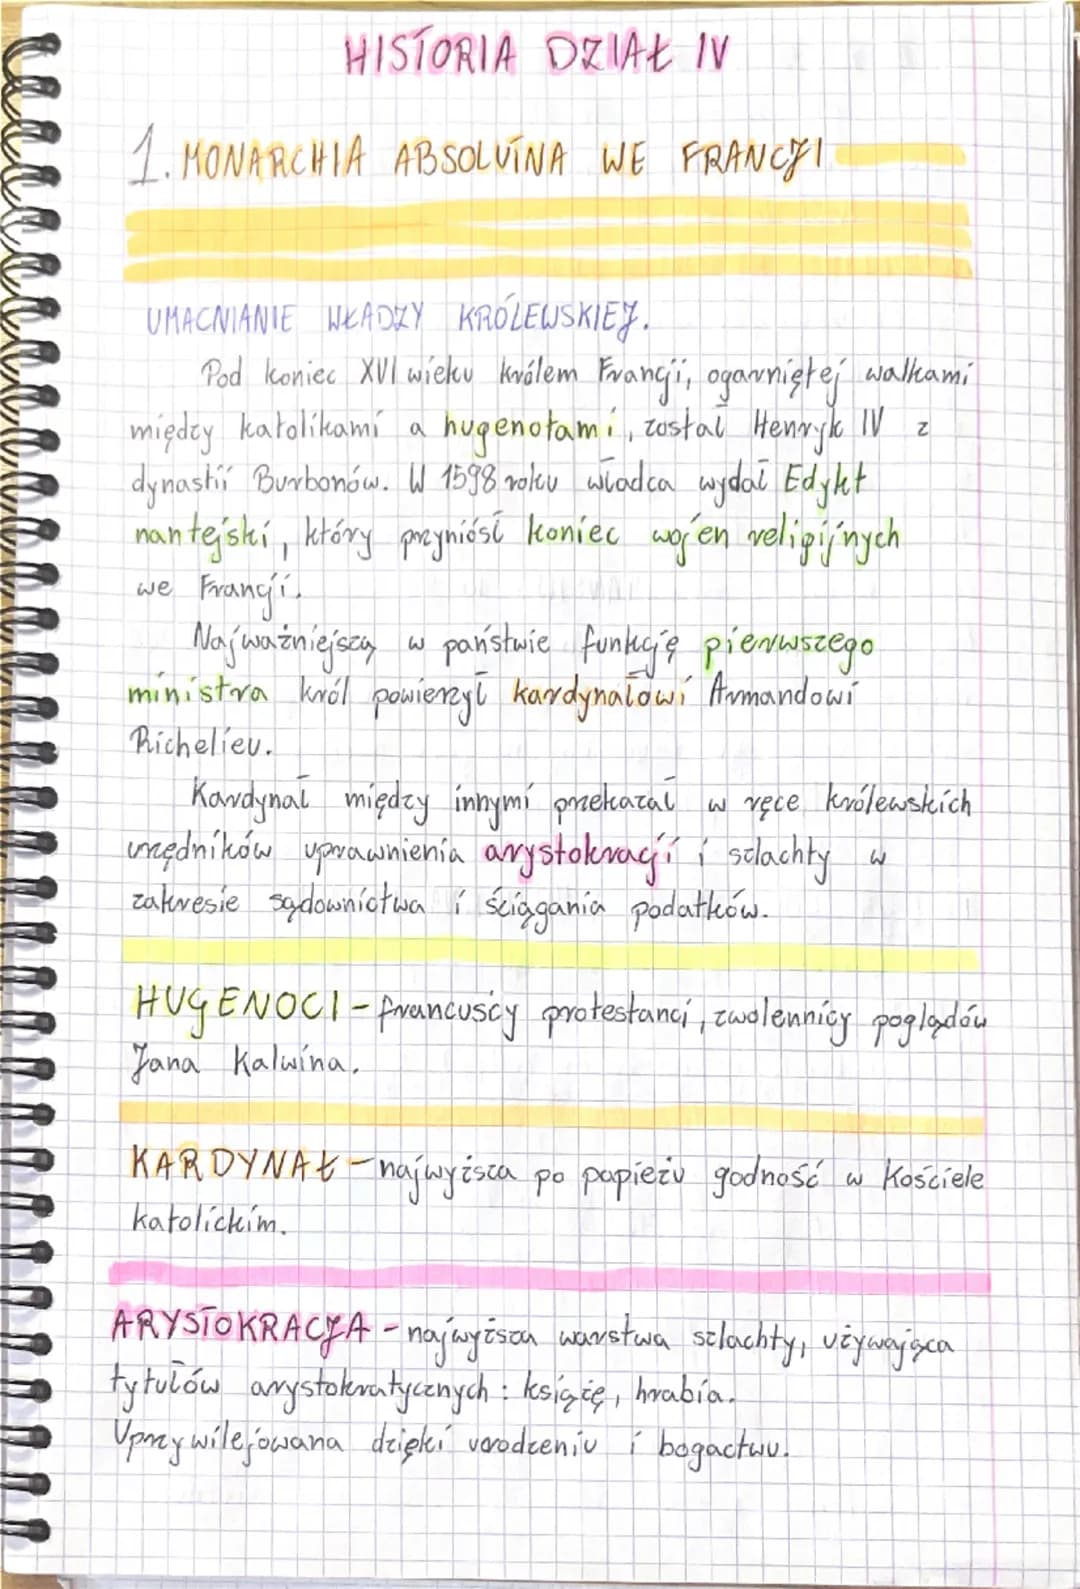 HISTORIA DZIAŁ IV
1. MONARCHIA ABSOLUTNA WE FRANCJI
UMACNIANIE WŁADZY KRÓLEWSKIEJ.
Pod koniec XVI wieku królem Francji, ogarniętej walkami
między katolikami a hugenotami, został Henryk IV z
dynastii Burbonów. W 1598 roku władca wydał Edykt
nantejski, który przyniósł koniec wojen religijnych
we Francji.
Najważniejszą w państwie funkcję pierwszego
ministra król powierzył kardynałowi Armandowi
Richelieu.
Kardynał między innymi przekazał w ręce królewskich
urzędników uprawnienia arystokracji i szlachty w
zakresie sądownictwa i ściągania podatków.
HUGENOCI - francuscy protestanci, zwolennicy poglądów
Jana Kalwina.
KARDYNAŁ - najwyższa po papieżu godność w Kościele
katolickim.
ARYSTOKRACJA - najwyższa warstwa szlachty, używająca
tytułów arystokratycznych: książę, hrabia.
Uprzywilejowana dzięki urodzeniu i bogactwu.